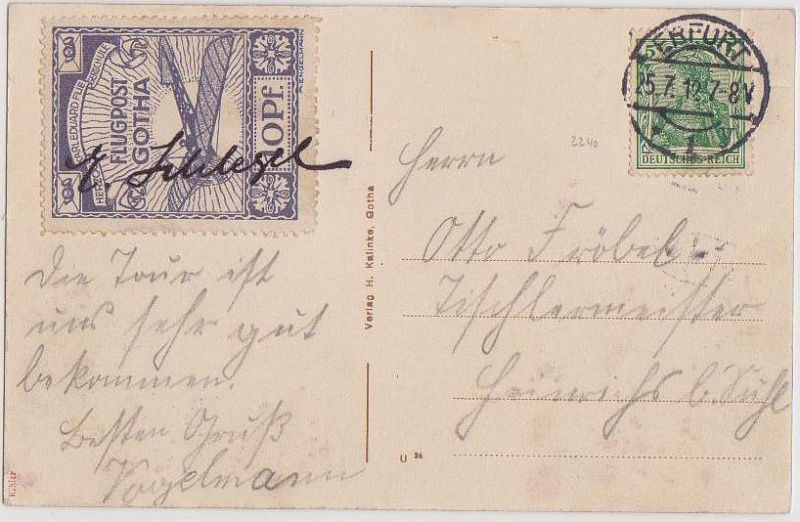 HERZOG CARL EDUARD FLIEGERSCHULE
FLUGPOST
GOTHA
10 Pf.
E Schlegel
Die Tour ist
uns sehr gut
bekommen.
Besten Gruß
Vogelmann
Verlag H. Kalinke, Gotha
U 24
ERFURT
25.7.12.7-8V
1
5
DEUTSCHES REICH
2240
Herrn
Otto Fröbel
Tischlermeister
Heinrichs b. Suhl
Köhler